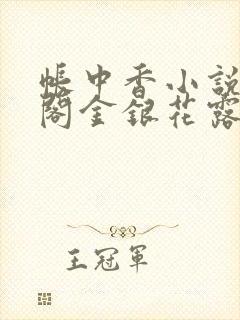 帳中香小說
閣金銀花露
王冠軍